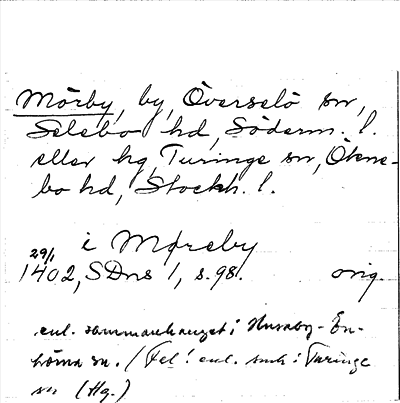 Mörby, by, Överselö sn,
Selebo hd, Söderm. l.
eller hg, Turinge sn, Ökne-
bo hd, Stockh. l.
i Møreby
29/1
1402, SDns 1, s. 98. orig.
enl. sammanhanget i Husaby-En-
köma sn. / (Fel! enl. smh i Turinge
sn (Hg.)